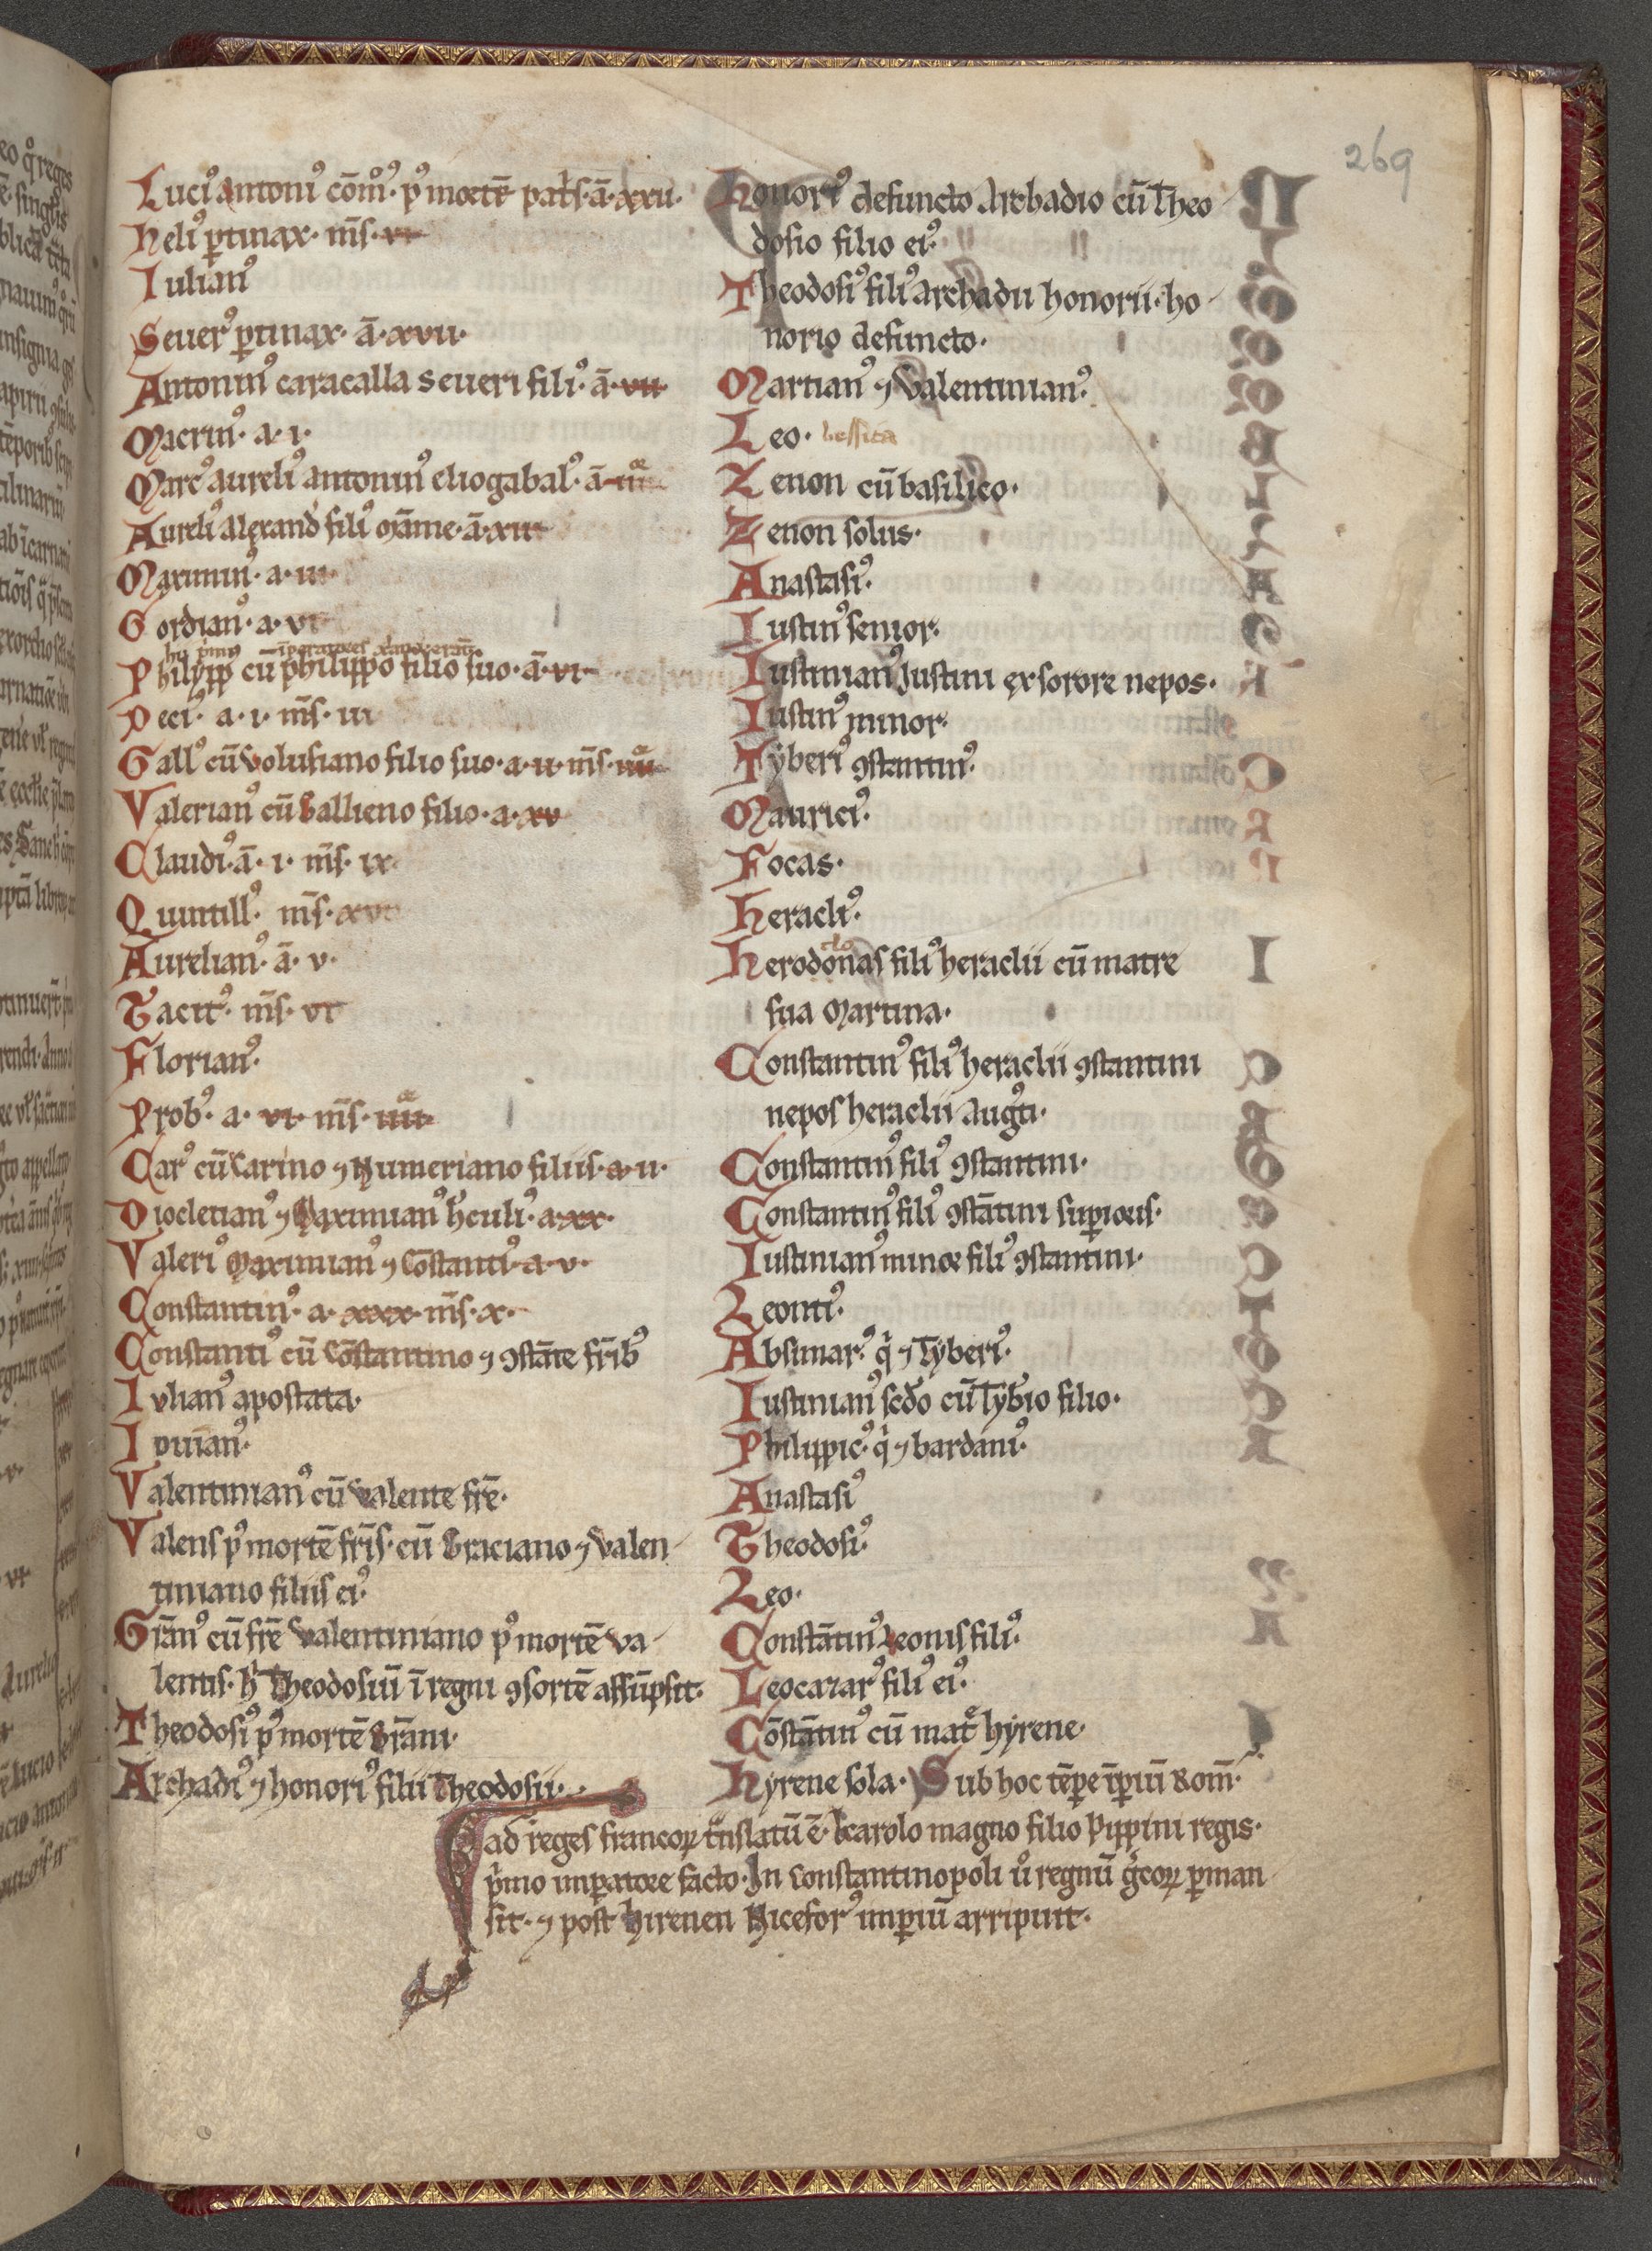 269
Luciꝰ antoniꝰ cōmꝰ· pꝰ mortē patrˢ· ā· xxii·
Heliꝰ ꝑtinax· m̄s· vi
Iulianꝰ
Seuerꝰ ꝑtinax· ā· xvii·
Antoninꝰ caracalla seueri filiꝰ· ā· vii
Macrinꝰ· a· i·
Marcꝰ aureliꝰ antoninꝰ eliogabalꝰ· ā· iiii
Aureliꝰ alexand filiꝰ māme· ā· xiii
Maximinꝰ· a· iii·
Gordianꝰ· a· vi
hii pͥmi īperatores xp̄iani erant
Philipp cū philippo filio suo· ā· vi·
Deciꝰ· a· i· m̄s· iii
Gallꝰ cū volusiano filio suo· a· ii· m̄s· iiii
Valerianꝰ cū Gallieno filio· a· xv
Claudiꝰ· ā· i· m̄s· ix·
Quintillꝰ· m̄s· xvi
Aurelianꝰ· ā· v·
Tacitꝰ· m̄s· vi
Florianꝰ·
Probꝰ· a· vi· m̄s· iiii·
Carꝰ cū Carino ⁊ Numeriano filiis· a· ii·
Diocletianꝰ ⁊ Maximianꝰ h̄culiꝰ· a· xx·
Valeriꝰ Maximianꝰ ⁊ Cōstantiꝰ· a· v·
Constantinꝰ· a· xxx· m̄s· x·
Constantiꝰ cū Cōstantino ⁊ ꝯstāte fr̄ibꝰ
Iulianꝰ apostata·
Iouianꝰ·
Valentinianꝰ cū valente fr̄e·
Valens pꝰ mortē fr̄is· cū Graciano ⁊ Valen-
tiniano filiis eiꝰ·
Gr̄anꝰ cū fr̄e Valentiniano pꝰ mortē va-
lentis· h̄ Theodosiū ī regni ꝯsortē assūpsit·
Theodosiꝰ pꝰ mortē Gr̄ani·
Archadiꝰ ⁊ honoriꝰ filii Theodosii·
Honoriꝰ defuncto Archadio cū Theo
dosio filio eiꝰ·
Theodosiꝰ filiꝰ Archadii honorii· ho-
norio defuncto·
Martianꝰ ⁊ Valentinianꝰ·
Leo· bessica
Zenon cū basilico·
Zenon solus·
Anastasiꝰ·
Iustinꝰ senior·
Iustinianꝰ Iustini ex sorore nepos·
Iustinꝰ minor·
Tyberiꝰ ꝯstantinꝰ·
Mauriciꝰ·
Focas·
Heracliꝰ·
clo
Herodonas filiꝰ heraclii cū matre
sua Martina·
Constantinꝰ filiꝰ heraclii ꝯstantini
nepos heraclii Augᵗi·
Constantinꝰ filiꝰ ꝯstantini·
Constantinꝰ filiꝰ ꝯstātini suꝑioris·
Iustinianꝰ minor filiꝰ ꝯstantini·
Leontiꝰ·
Absimarꝰ· qͥ ⁊ Tyberiꝰ·
Iustinianꝰ scd̄o cū Tyb̄io filio·
Philippicꝰ· qͥ ⁊ bardaniꝰ·
Anastasiꝰ
Theodosiꝰ·
Leo·
Constātinꝰ Leonis filiꝰ·
Leocazarꝰ filiꝰ eiꝰ·
Cōstātinꝰ cū matͤ hyrene·
Hyrene sola· Sub hoc tēpe īꝑiū Rom̄·
ad reges francoꝝ tͣnslatū ē· karolo magno filio Pippini regis·
pͥmo imꝑatore facto· In constantinopoli uͦ regnū gͤcoꝝ ꝑman
sit· ⁊ post hirenen Niceforꝰ imꝑiū arripuit·